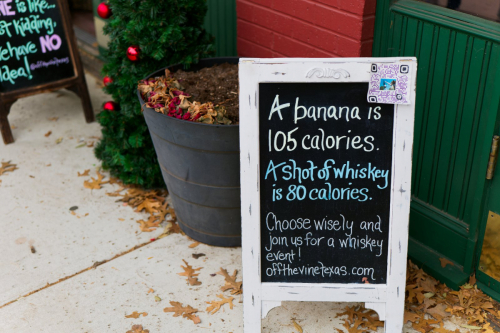 NE is like...
st kidding.
We have NO
Idea!
A banana is
105 calories.
A shot of whiskey
is 80 calories.
Choose wisely and
join us for a whiskey
event!
offthevinetexas.com